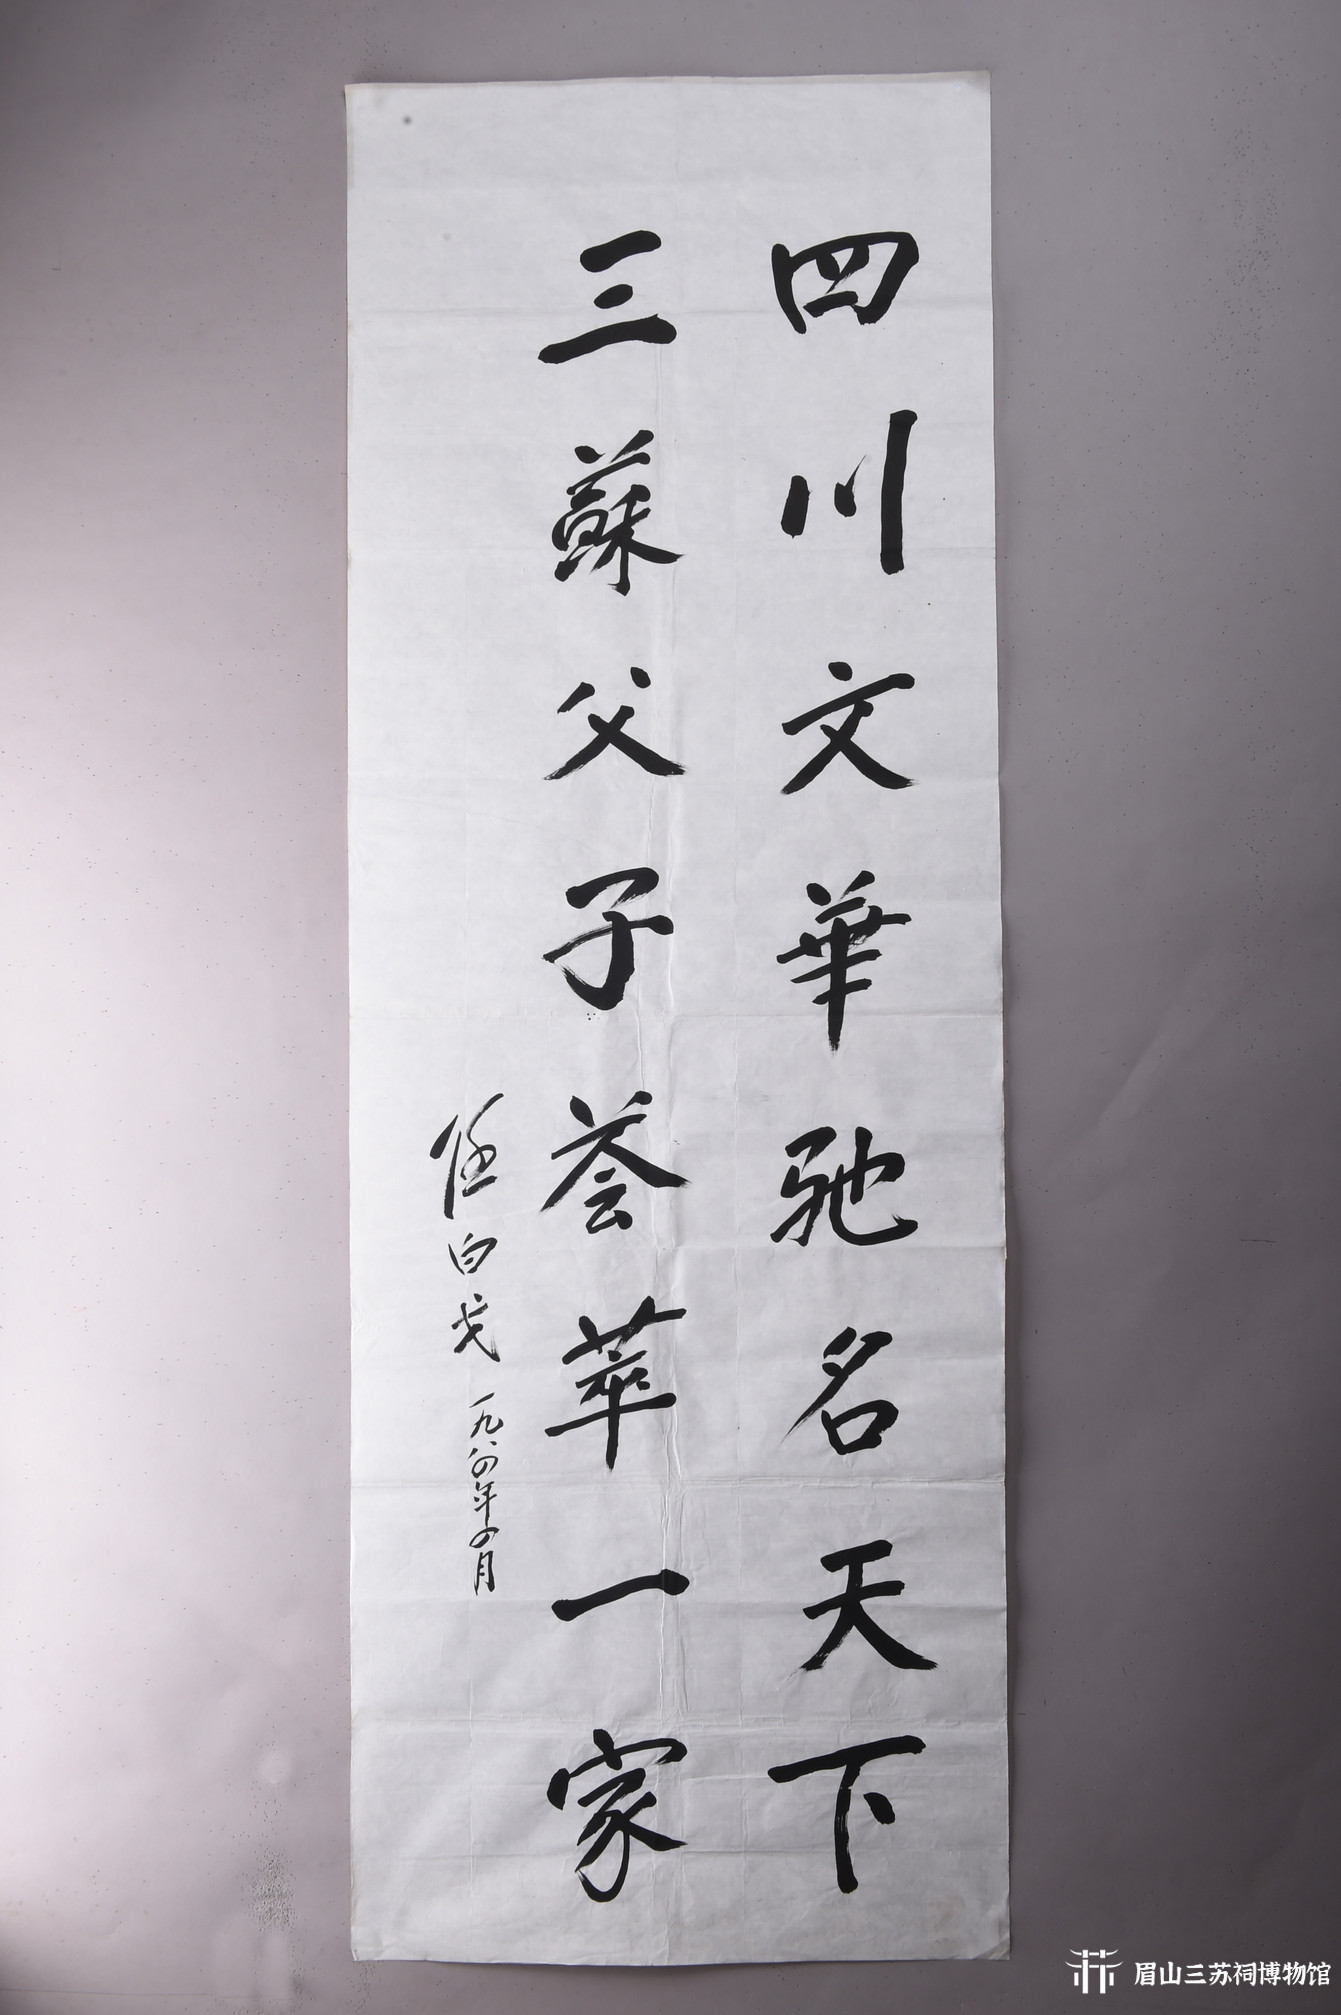 四川文華馳名天下
三蘇父子荟萃一家
任白戈 一九八四年四月
眉山三苏祠博物馆